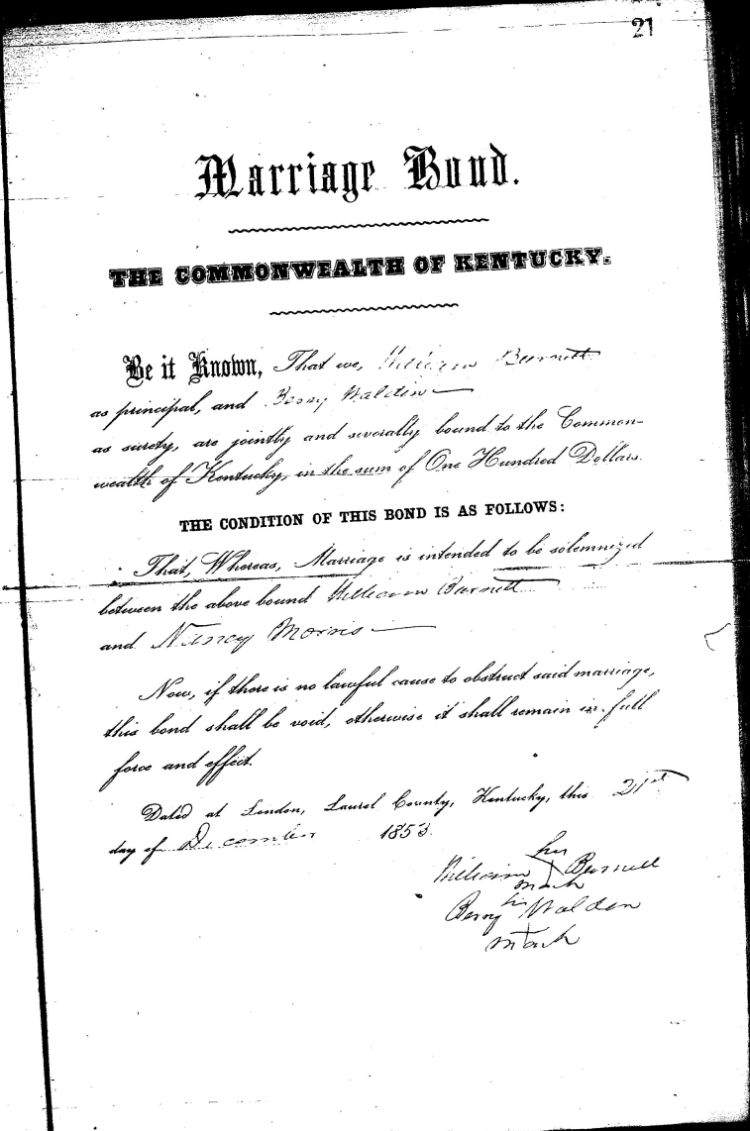 21
Marriage Bond.
THE COMMONWEALTH OF KENTUCKY.
Be it Known, That we, William Burnett
as principal, and Berry Walden
as surety, are jointly and severally bound to the Common-
wealth of Kentucky, in the sum of One Hundred Dollars.
THE CONDITION OF THIS BOND IS AS FOLLOWS:
That, Whereas, Marriage is intended to be solemnized
between the above bound William Burnett
and Nancy Morris
Now, if there is no lawful cause to obstruct said marriage,
this bond shall be void, otherwise it shall remain in full
force and effect.
Dated at London, Laurel County, Kentucky, this 21st
day of December 1853.
his
William X Burnett
mark
his
Berry Walden
mark